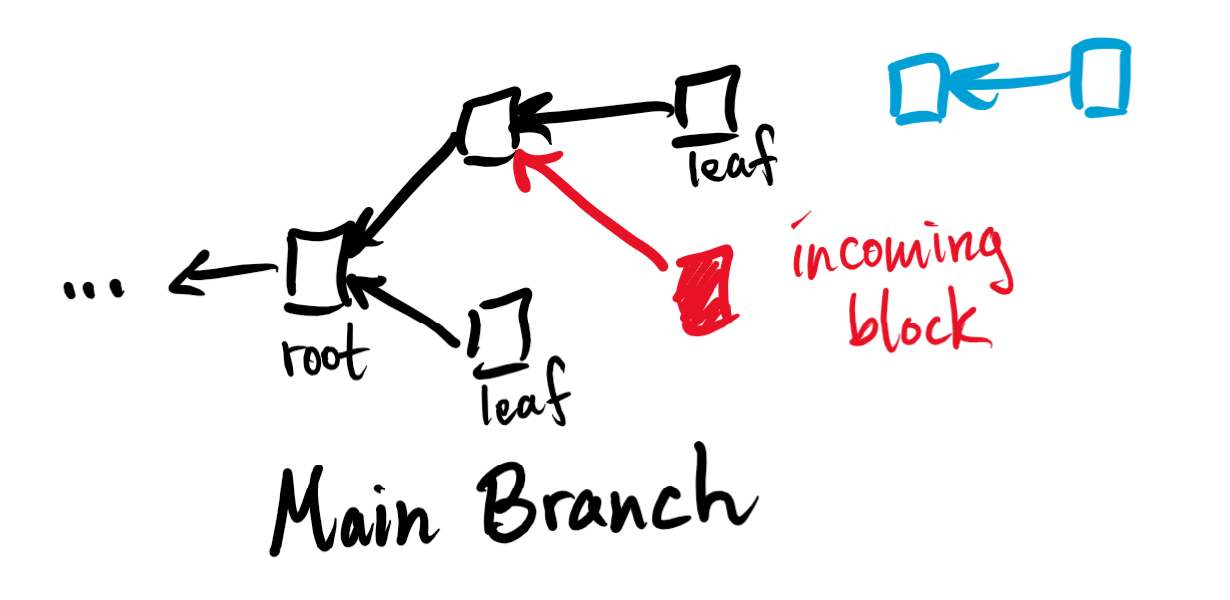 leaf
incoming
block
...
root
leaf
Main Branch